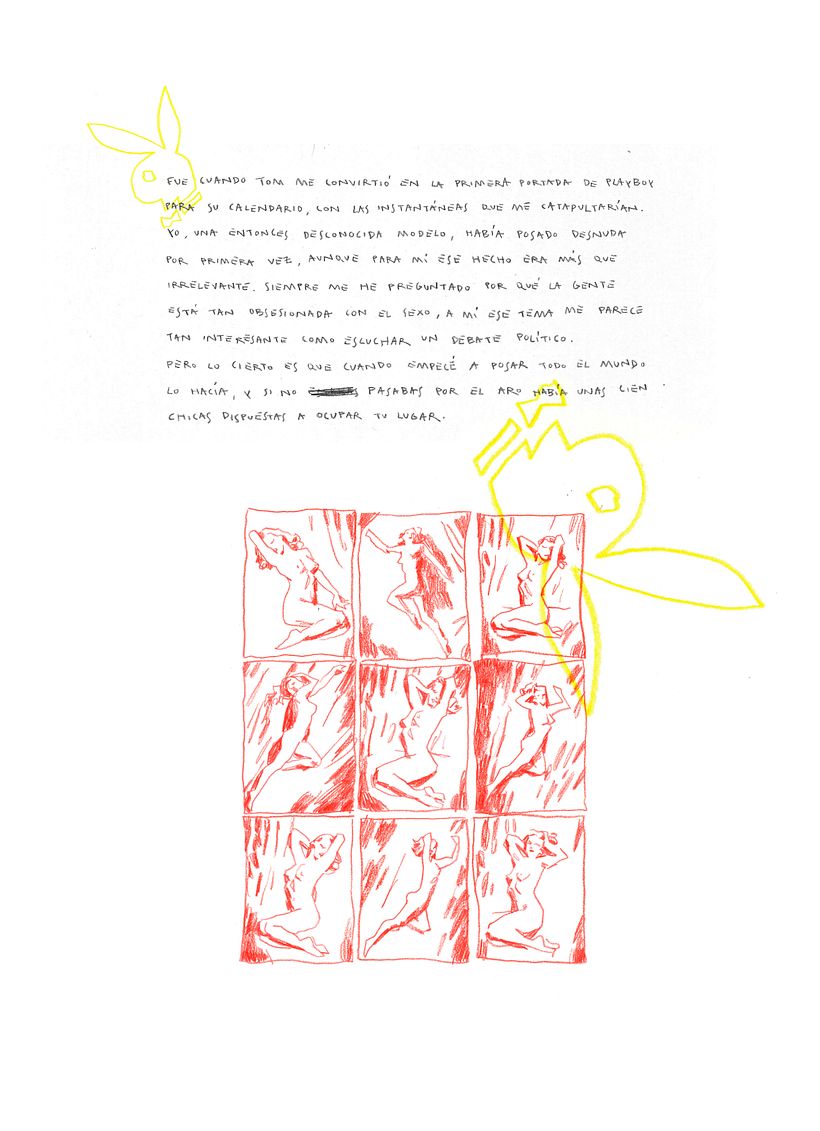 FUE CUANDO TOM ME CONVIRTIÓ EN LA PRIMERA PORTADA DE PLAYBOY
PARA SU CALENDARIO, CON LAS INSTANTÁNEAS QUE ME CATAPULTARÍAN.
YO, UNA ENTONCES DESCONOCIDA MODELO, HABÍA POSADO DESNUDA
POR PRIMERA VEZ, AUNQUE PARA MÍ ESE HECHO ERA MÁS QUE
IRRELEVANTE. SIEMPRE ME HE PREGUNTADO POR QUÉ LA GENTE
ESTÁ TAN OBSESIONADA CON EL SEXO, A MÍ ESE TEMA ME PARECE
TAN INTERESANTE COMO ESCUCHAR UN DEBATE POLÍTICO.
PERO LO CIERTO ES QUE CUANDO EMPECÉ A POSAR TODO EL MUNDO
LO HACÍA, Y SI NO PASABAS POR EL ARO HABÍA UNAS CIEN
CHICAS DISPUESTAS A OCUPAR TU LUGAR.